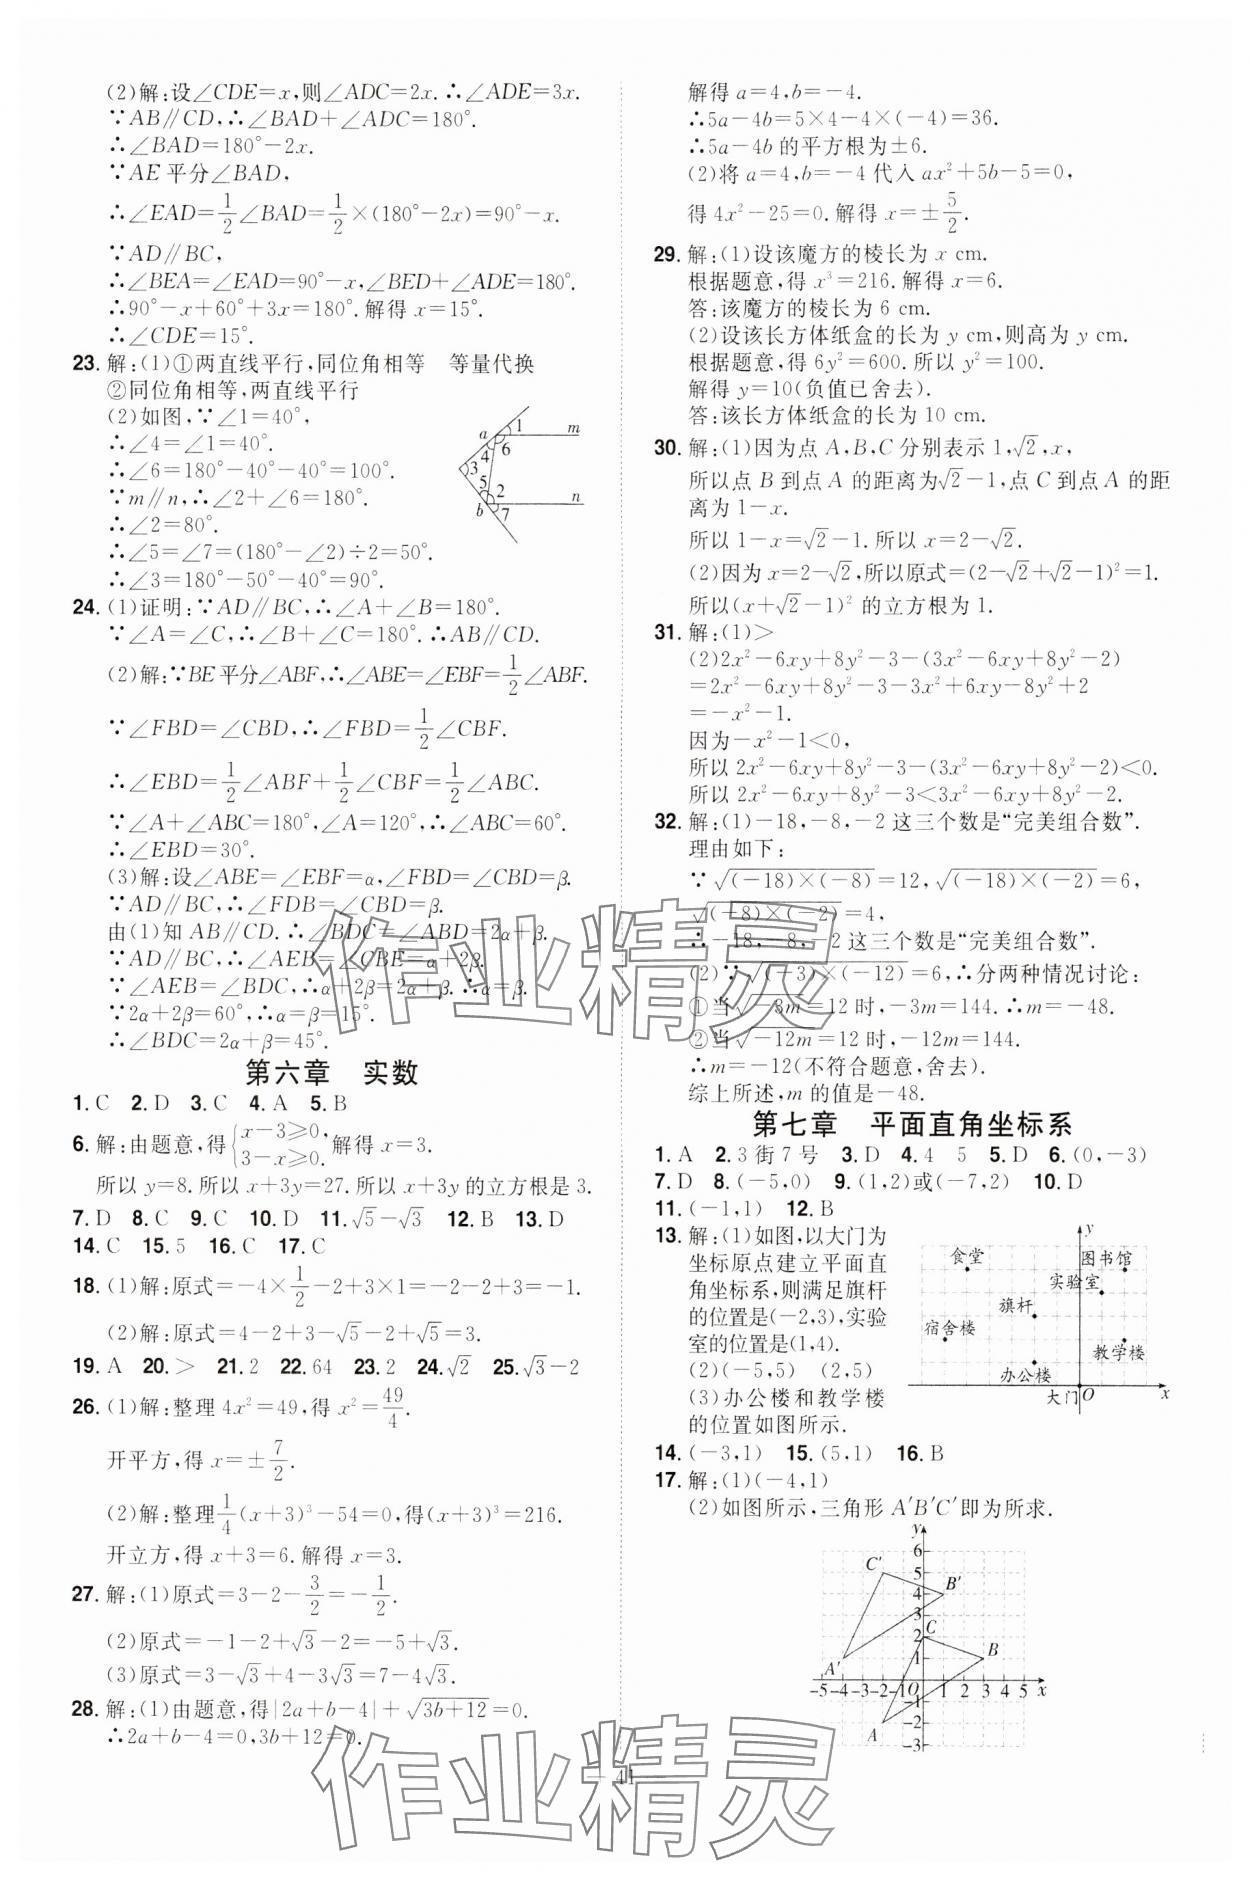 (2)解:设∠CDE=x,则∠ADC=2x.∴∠ADE=3x.
∵AB∥CD,∴∠BAD+∠ADC=180°.
∴∠BAD=180°-2x.
∵AE平分∠BAD,
∴∠EAD=1/2∠BAD=1/2×(180°-2x)=90°-x.
∵AD∥BC,
∴∠BEA=∠EAD=90°-x,∠BED+∠ADE=180°.
∴90°-x+60°+3x=180°.解得x=15°.
∴∠CDE=15°.
23.解:(1)①两直线平行,同位角相等 等量代换
②同位角相等,两直线平行
(2)如图,∵∠1=40°,
∴∠4=∠1=40°.
∴∠6=180°-40°-40°=100°.
∵m∥n,∴∠2+∠6=180°.
∴∠2=80°.
∴∠5=∠7=(180°-∠2)÷2=50°.
∴∠3=180°-50°-40°=90°.
a 1 m
4 6
3
5 2 n
b 7
24.(1)证明:∵AD∥BC,∴∠A+∠B=180°.
∵∠A=∠C,∴∠B+∠C=180°.∴AB∥CD.
(2)解:∵BE平分∠ABF,∴∠ABE=∠EBF=1/2∠ABF.
∵∠FBD=∠CBD,∴∠FBD=1/2∠CBF.
∴∠EBD=1/2∠ABF+1/2∠CBF=1/2∠ABC.
∵∠A+∠ABC=180°,∠A=120°,∴∠ABC=60°.
∴∠EBD=30°.
(3)解:设∠ABE=∠EBF=α,∠FBD=∠CBD=β.
∵AD∥BC,∴∠FDB=∠CBD=β.
由(1)知AB∥CD.∴∠BDC=∠ABD=2α+β.
∵AD∥BC,∴∠AEB=∠CBE=α+2β.
∵∠AEB=∠BDC,∴α+2β=2α+β.∴α=β.
∵2α+2β=60°,∴α=β=15°.
∴∠BDC=2α+β=45°.
第六章 实数
1.C 2.D 3.C 4.A 5.B
6.解:由题意,得{x-3≥0, 3-x≥0. 解得x=3.
所以y=8.所以x+3y=27.所以x+3y的立方根是3.
7.D 8.C 9.C 10.D 11.√5-√3 12.B 13.D
14.C 15.5 16.C 17.C
18.(1)解:原式=-4×1/2-2+3×1=-2-2+3=-1.
(2)解:原式=4-2+3-√5-2+√5=3.
19.A 20.> 21.2 22.64 23.2 24.√2 25.√3-2
26.(1)解:整理4x²=49,得x²=49/4.
开平方,得x=±7/2.
(2)解:整理1/4(x+3)³-54=0,得(x+3)³=216.
开立方,得x+3=6.解得x=3.
27.解:(1)原式=3-2-3/2=-1/2.
(2)原式=-1-2+√3-2=-5+√3.
(3)原式=3-√3+4-3√3=7-4√3.
28.解:(1)由题意,得|2a+b-4|+√(3b+12)=0.
∴2a+b-4=0,3b+12=0.
解得a=4,b=-4.
∴5a-4b=5×4-4×(-4)=36.
∴5a-4b的平方根为±6.
(2)将a=4,b=-4代入ax²+5b-5=0,
得4x²-25=0.解得x=±5/2.
29.解:(1)设该魔方的棱长为x cm.
根据题意,得x³=216.解得x=6.
答:该魔方的棱长为6 cm.
(2)设该长方体纸盒的长为y cm,则高为y cm.
根据题意,得6y²=600.所以y²=100.
解得y=10(负值已舍去).
答:该长方体纸盒的长为10 cm.
30.解:(1)因为点A,B,C分别表示1,√2,x,
所以点B到点A的距离为√2-1,点C到点A的距
离为1-x.
所以1-x=√2-1.所以x=2-√2.
(2)因为x=2-√2,所以原式=(2-√2+√2-1)²=1.
所以(x+√2-1)²的立方根为1.
31.解:(1)>
(2)2x²-6xy+8y²-3-(3x²-6xy+8y²-2)
=2x²-6xy+8y²-3-3x²+6xy-8y²+2
=-x²-1.
因为-x²-1<0,
所以2x²-6xy+8y²-3-(3x²-6xy+8y²-2)<0.
所以2x²-6xy+8y²-3<3x²-6xy+8y²-2.
32.解:(1)-18,-8,-2这三个数是“完美组合数”.
理由如下:
∵√((-18)×(-8))=12,√((-18)×(-2))=6,
√((-8)×(-2))=4,
∴-18,-8,-2这三个数是“完美组合数”.
(2)∵√((-3)×(-12))=6,∴分两种情况讨论:
①当√(-3m)=12时,-3m=144.∴m=-48.
②当√(-12m)=12时,-12m=144.
∴m=-12(不符合题意,舍去).
综上所述,m的值是-48.
第七章 平面直角坐标系
1.A 2.3街7号 3.D 4.4 5 5.D 6.(0,-3)
7.D 8.(-5,0) 9.(1,2)或(-7,2) 10.D
11.(-1,1) 12.B
13.解:(1)如图,以大门为
坐标原点建立平面直
角坐标系,则满足旗杆
的位置是(-2,3),实验
室的位置是(1,4).
(2)(-5,5) (2,5)
(3)办公楼和教学楼
的位置如图所示.
y
食堂 图书馆
实验室
旗杆
宿舍楼
教学楼
办公楼
大门 O x
14.(-3,1) 15.(5,1) 16.B
17.解:(1)(-4,1)
(2)如图所示,三角形A′B′C′即为所求.
y
6
C′ 5
4 B′
3
2 C
A′ 1 B
-5-4-3-2-1 O 1 2 3 4 5 x
-1
A -2
-3
— 41 —
作业精灵
作业精灵